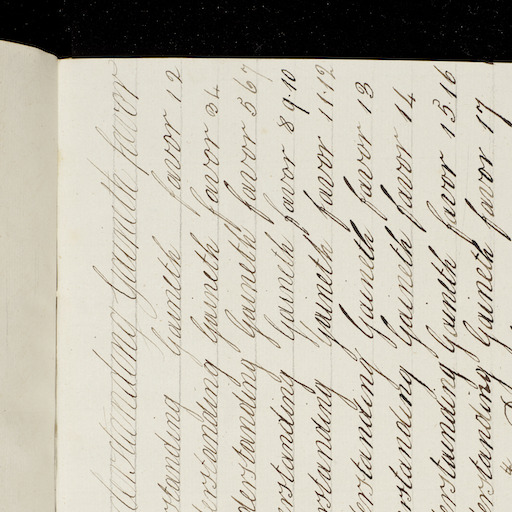 derstanding Gaineth favor
standing Gaineth favor 12
erstanding Gaineth favor 34
derstanding Gaineth favor 5 67
erstanding Gaineth favor 8 9.10
rstanding Gaineth favor 11.12
erstanding Gaineth favor 13
rstanding Gaineth favor 14
derstanding Gaineth favor 15.16
derstanding Gaineth favor 17